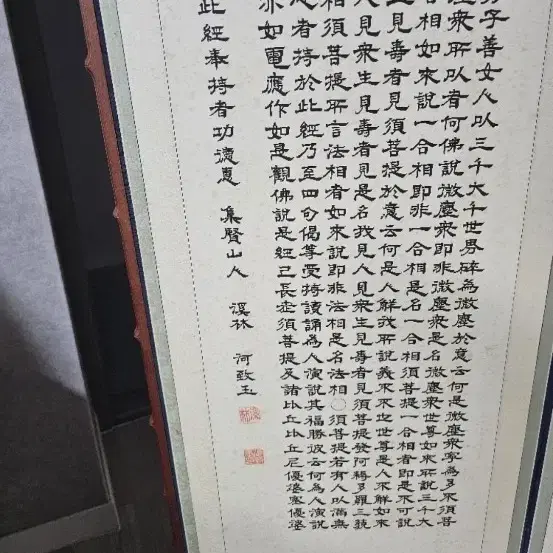 子善女人以三千大千世界碎為微塵於意云何是微塵衆寧為多不須菩
塵衆所以者何佛說微塵衆即非微塵衆是名微塵衆世尊如來所說三千大
合相如來說一合相即非一合相是名一合相須菩提一合相者即是不可說
生見壽者見須菩提於意云何是人解我所說義不不也世尊是人不解如來
人見衆生見壽者見是名我見人見衆生見壽者見須菩提發阿耨多羅三藐
相須菩提所言法相者如來說即非法相是名法相○須菩提若有人以滿無
心者持於此經乃至四句偈等受持讀誦為人演說其福勝彼云何為人演說
亦如電應作如是觀佛說是經已長老須菩提及諸比丘比丘尼優婆塞優婆
此經奉持者功德惠 集賢山人 溪林 河致玉